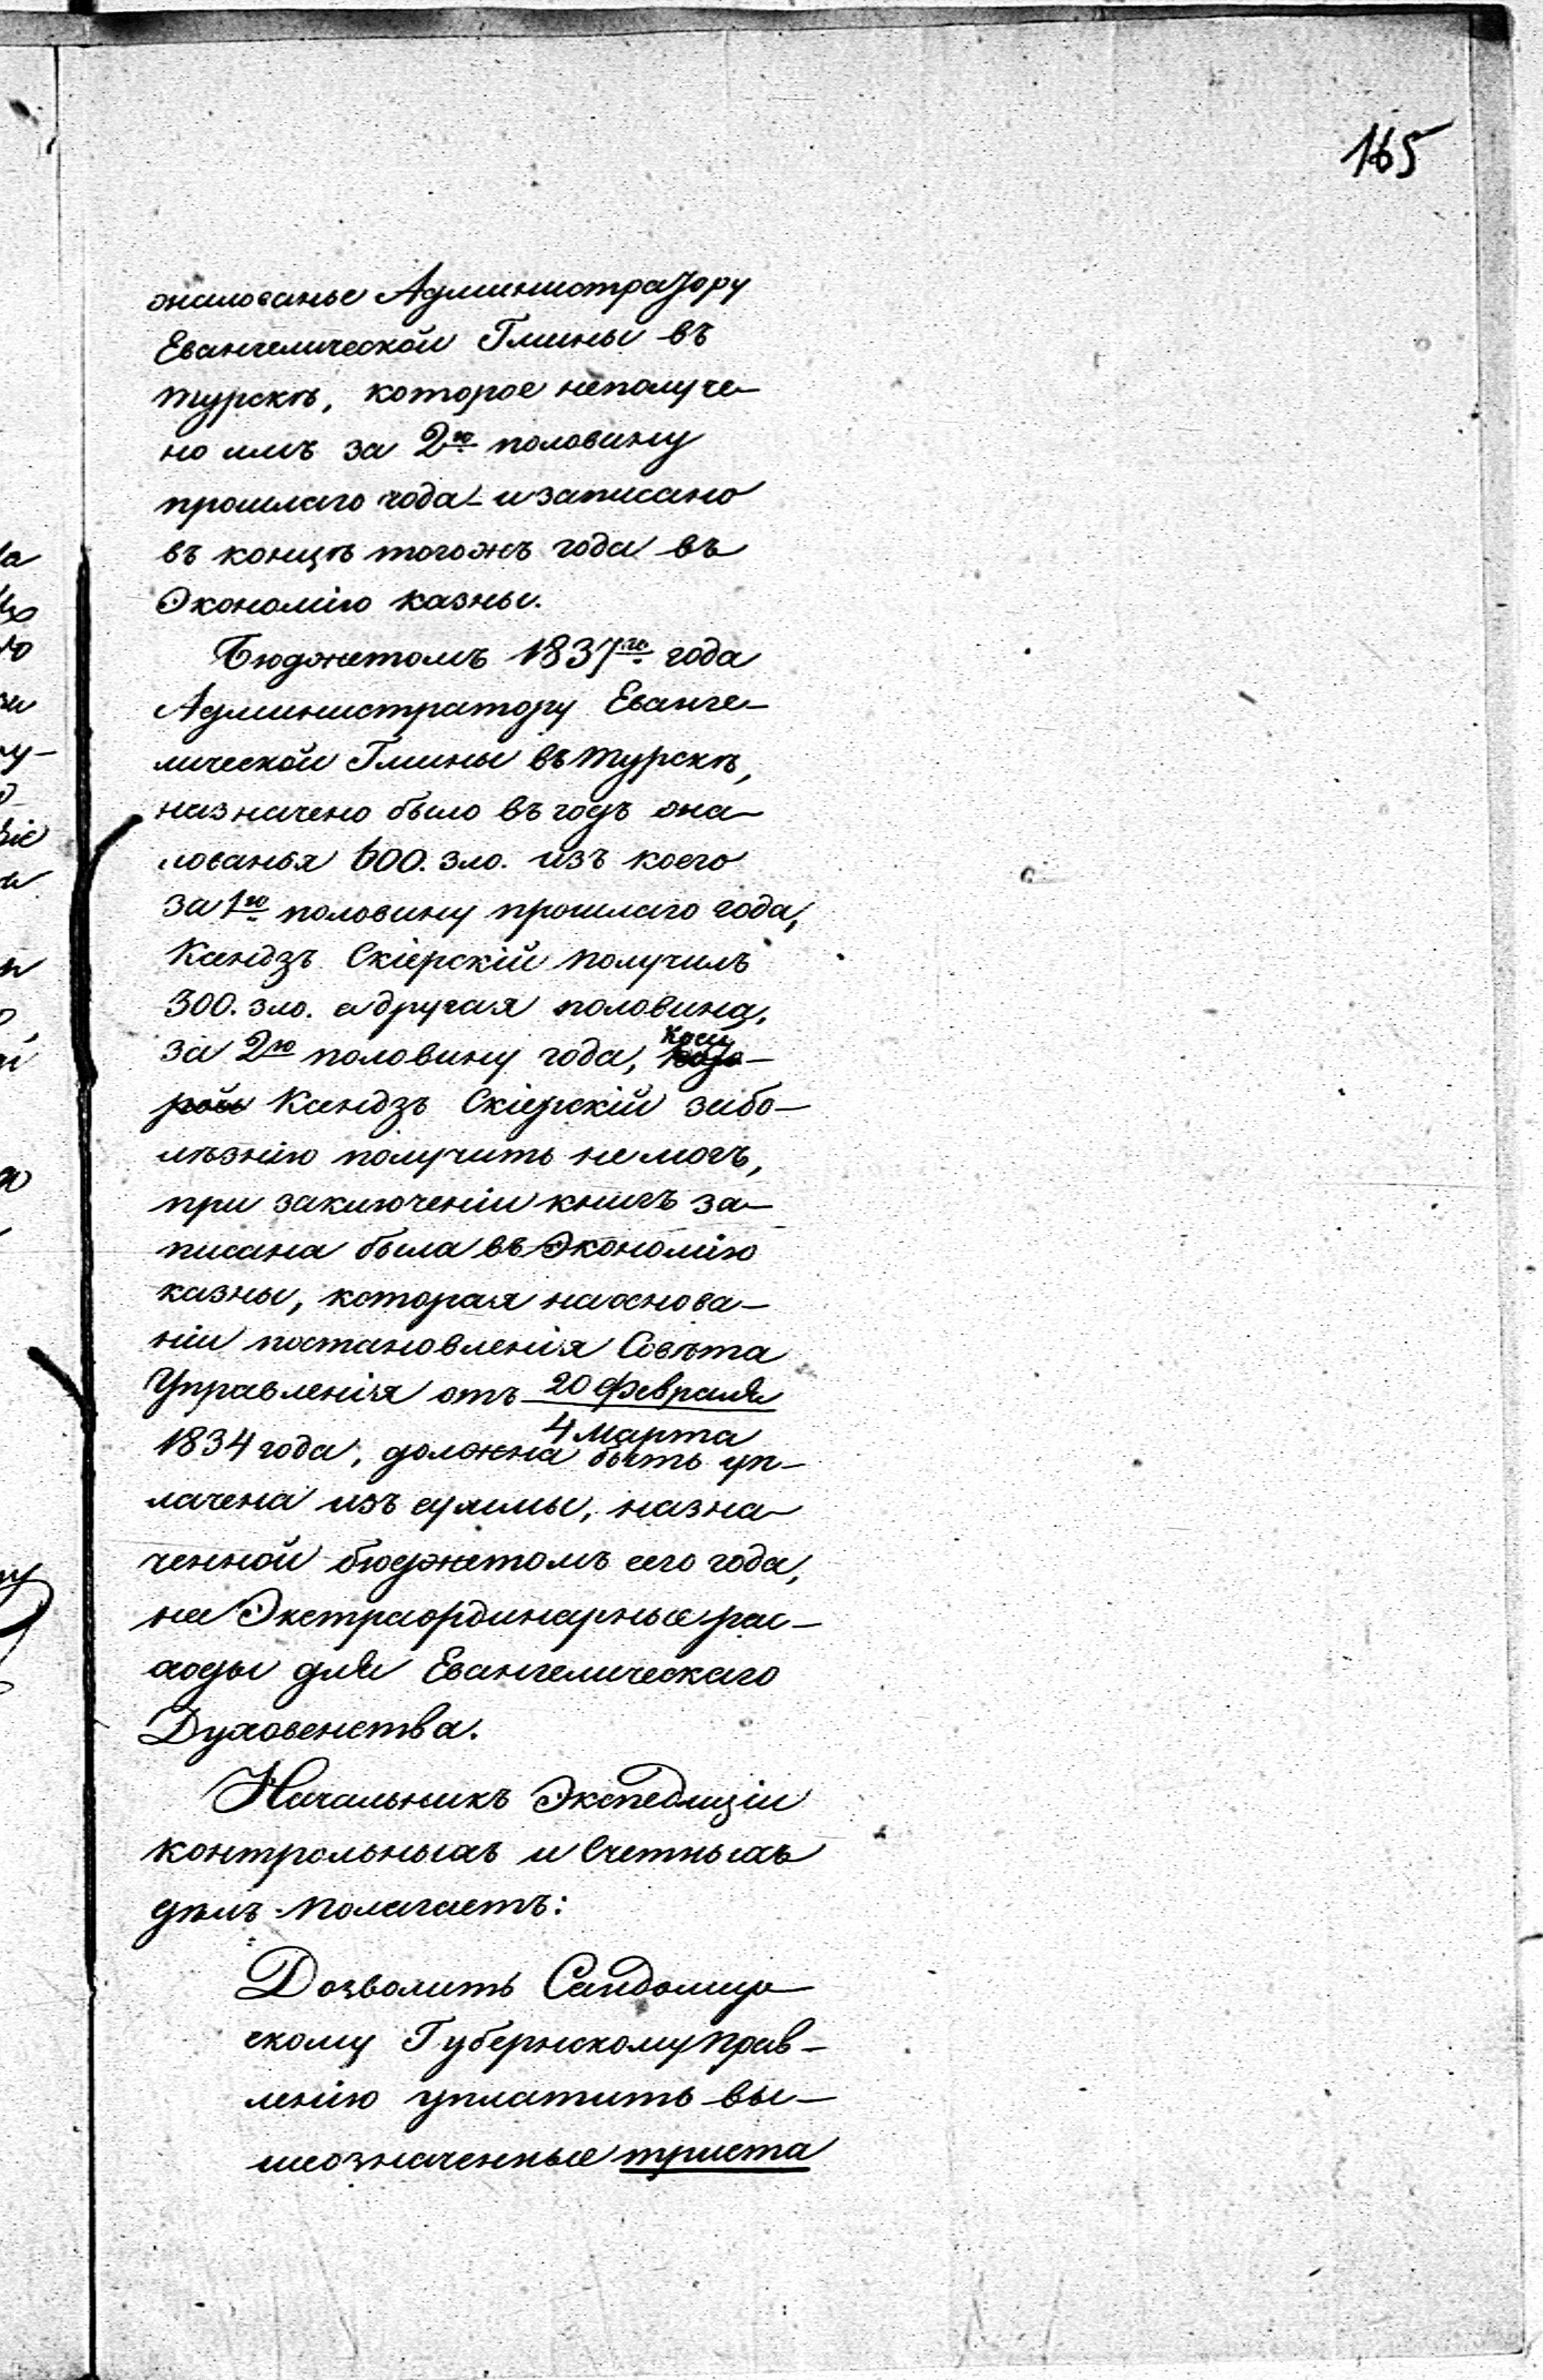 165
жалованье Администратору
Евангелической Гмины въ
Турскѣ, которое неполуче-
но имъ за 2ю половину
прошлаго года и записано
въ концѣ тогожъ года въ
Экономію казны.
Бюджетомъ 1837го года
Администратору Еванге-
лической Гмины въ Турскѣ,
назначено было въ годъ жа-
лованья 600. зло. изъ коего
за 1ю половину прошлаго года,
Ксендзъ Скіерскій получилъ
300. зло. а другая половина,
за 2ю половину года, коей кото-
рой Ксендзъ Скіерскій забо-
лѣзнію получить не могъ,
при заключеніи книгъ за-
писана была въ Экономію
казны, которая на основа-
ніи постановленія Совѣта
Управленія отъ 20 февраля
4 Марта
1834 года, должна быть уп-
лачена изъ суммы, назна-
ченной бюджетомъ сего года,
на Экстраординарные рас-
ходы для Евангелическаго
Духовенства.
Начальникъ Экспедиціи
контрольныхъ и Счетныхъ
дѣлъ полагаетъ:
Дозволить Сандомир-
скому Губернскому Прав-
ленію уплатить вы-
шеозначенные триста